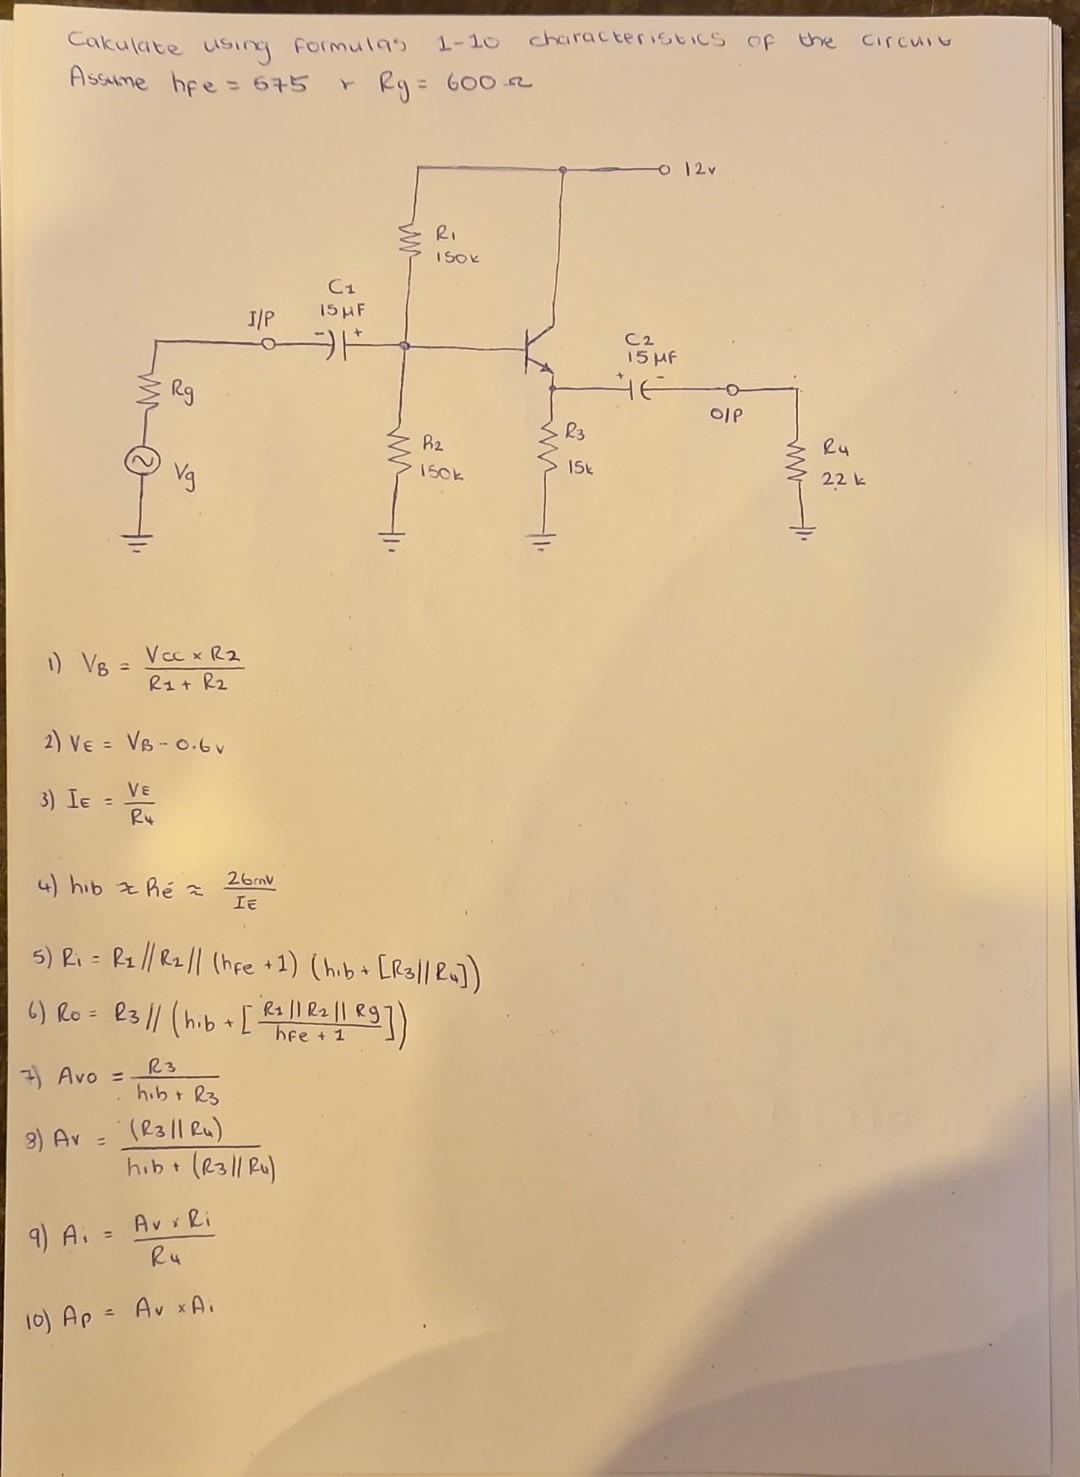 Calculate using formulas 1-10 characteristics of the circuit
Assume hfe = 575 r Rg = 600 Ω
12v
R1
150k
C1
15 µF
I/P
- +
C2
15 µF
+ -
Rg
O/P
R3
15k
R2
150k
R4
22 k
Vg
1) VB = Vcc × R2 / R1 + R2
2) VE = VB - 0.6v
3) IE = VE / R4
4) hib ≈ Ré ≈ 26mV / IE
5) Ri = R1 // R2 // (hfe + 1) (hib + [R3 || R4])
6) Ro = R3 // (hib + [R1 || R2 || Rg / hfe + 1])
7) Avo = R3 / hib + R3
8) Av = (R3 || R4) / hib + (R3 || R4)
9) Ai = Av × Ri / R4
10) Ap = Av × Ai